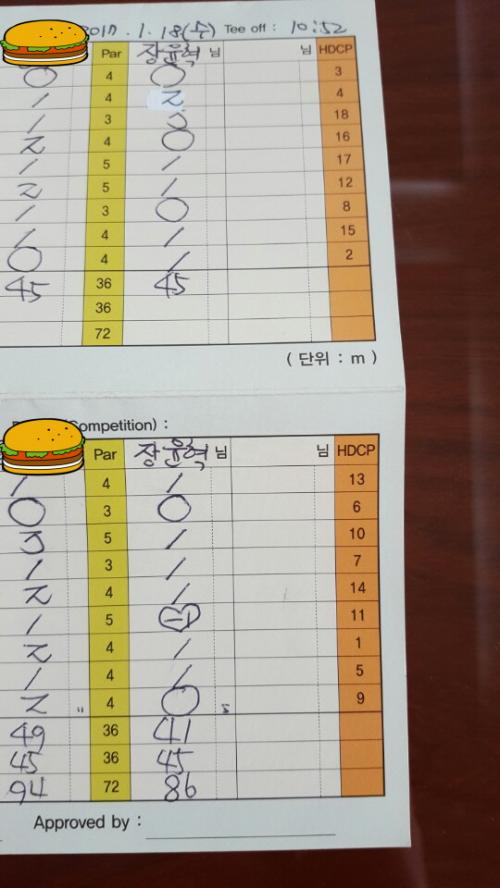 2017.1.18(수) Tee off : 10:52
Par 장윤혁 님 님 HDCP
0 4 0 3
/ 4 2 4
/ 3 3 18
2 4 0 16
/ 5 / 17
2 5 / 12
/ 3 0 8
/ 4 / 15
0 4 / 2
45 36 45
36
72
( 단위 : m )
(Competition) :
Par 장윤혁 님 님 HDCP
/ 4 / 13
0 3 0 6
3 5 / 10
/ 3 / 7
2 4 / 14
/ 5 -1 11
2 4 / 1
/ 4 / 5
2 4 0 9
49 36 41
45 36 45
94 72 86
Approved by :